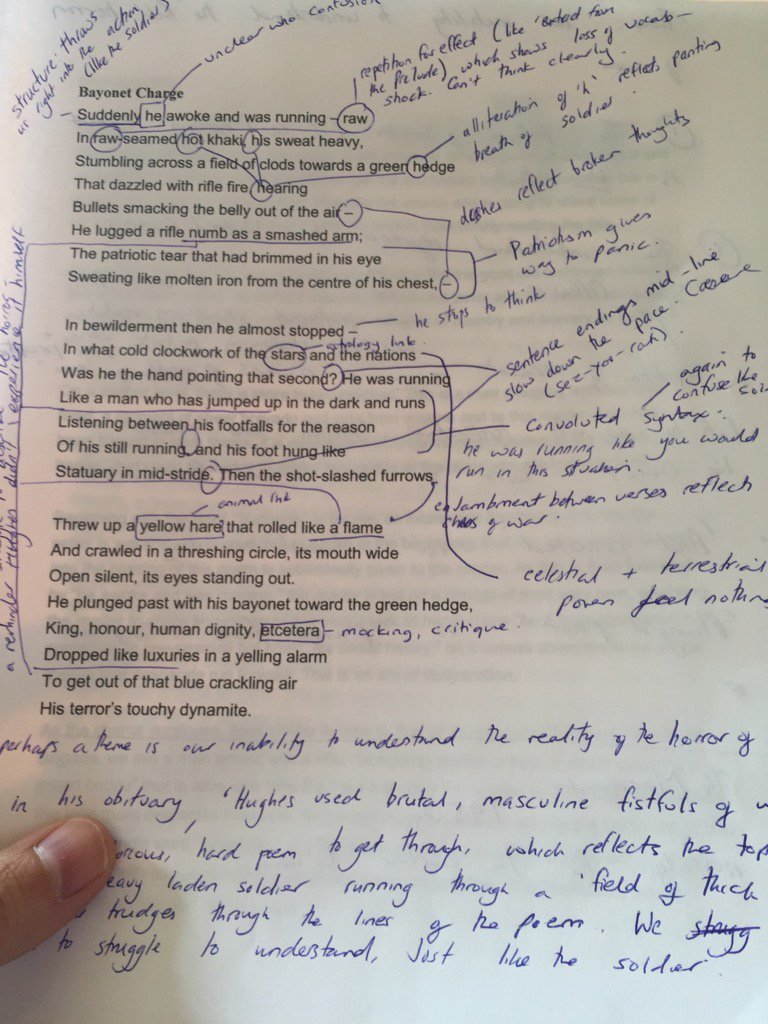 structure: throws
us right into the action
(like the soldier)
unclear who confusion
repetition for effect (like 'Extract from
the Prelude) which shows loss of vocab -
shock. Can't think clearly.
Bayonet Charge
Suddenly he awoke and was running – raw
In raw-seamed hot khaki, his sweat heavy,
Stumbling across a field of clods towards a green hedge
That dazzled with rifle fire, hearing
Bullets smacking the belly out of the air –
He lugged a rifle numb as a smashed arm;
The patriotic tear that had brimmed in his eye
Sweating like molten iron from the centre of his chest, –
alliteration of 'h' reflects panting
breath of soldier.
dashes reflect broken thoughts
Patriotism gives
way to panic.
In bewilderment then he almost stopped –
he stops to think
In what cold clockwork of the stars and the nations
astrology link
Was he the hand pointing that second? He was running
Like a man who has jumped up in the dark and runs
Listening between his footfalls for the reason
Of his still running, and his foot hung like
Statuary in mid-stride. Then the shot-slashed furrows
sentence endings mid-line
slow down the pace. Caesura
(sez-you-rah).
again to
confuse the
convoluted syntax.
he was running like you would
run in this situation.
enjambment between verses reflect
chaos of war.
animal link
Threw up a yellow hare that rolled like a flame
And crawled in a threshing circle, its mouth wide
Open silent, its eyes standing out.
He plunged past with his bayonet toward the green hedge,
King, honour, human dignity, etcetera – mocking, critique.
Dropped like luxuries in a yelling alarm
To get out of that blue crackling air
His terror's touchy dynamite.
celestial + terrestrial
power feel nothing
a reminder Hughes didn't experience it himself
perhaps a theme is our inability to understand the reality of the horror of
in his obituary, 'Hughes used brutal, masculine fistfuls of
hard poem to get through, which reflects the
heavy laden soldier running through a 'field of thick
trudges through the lines of the poem. We strugg
to struggle to understand, Just like the soldier.